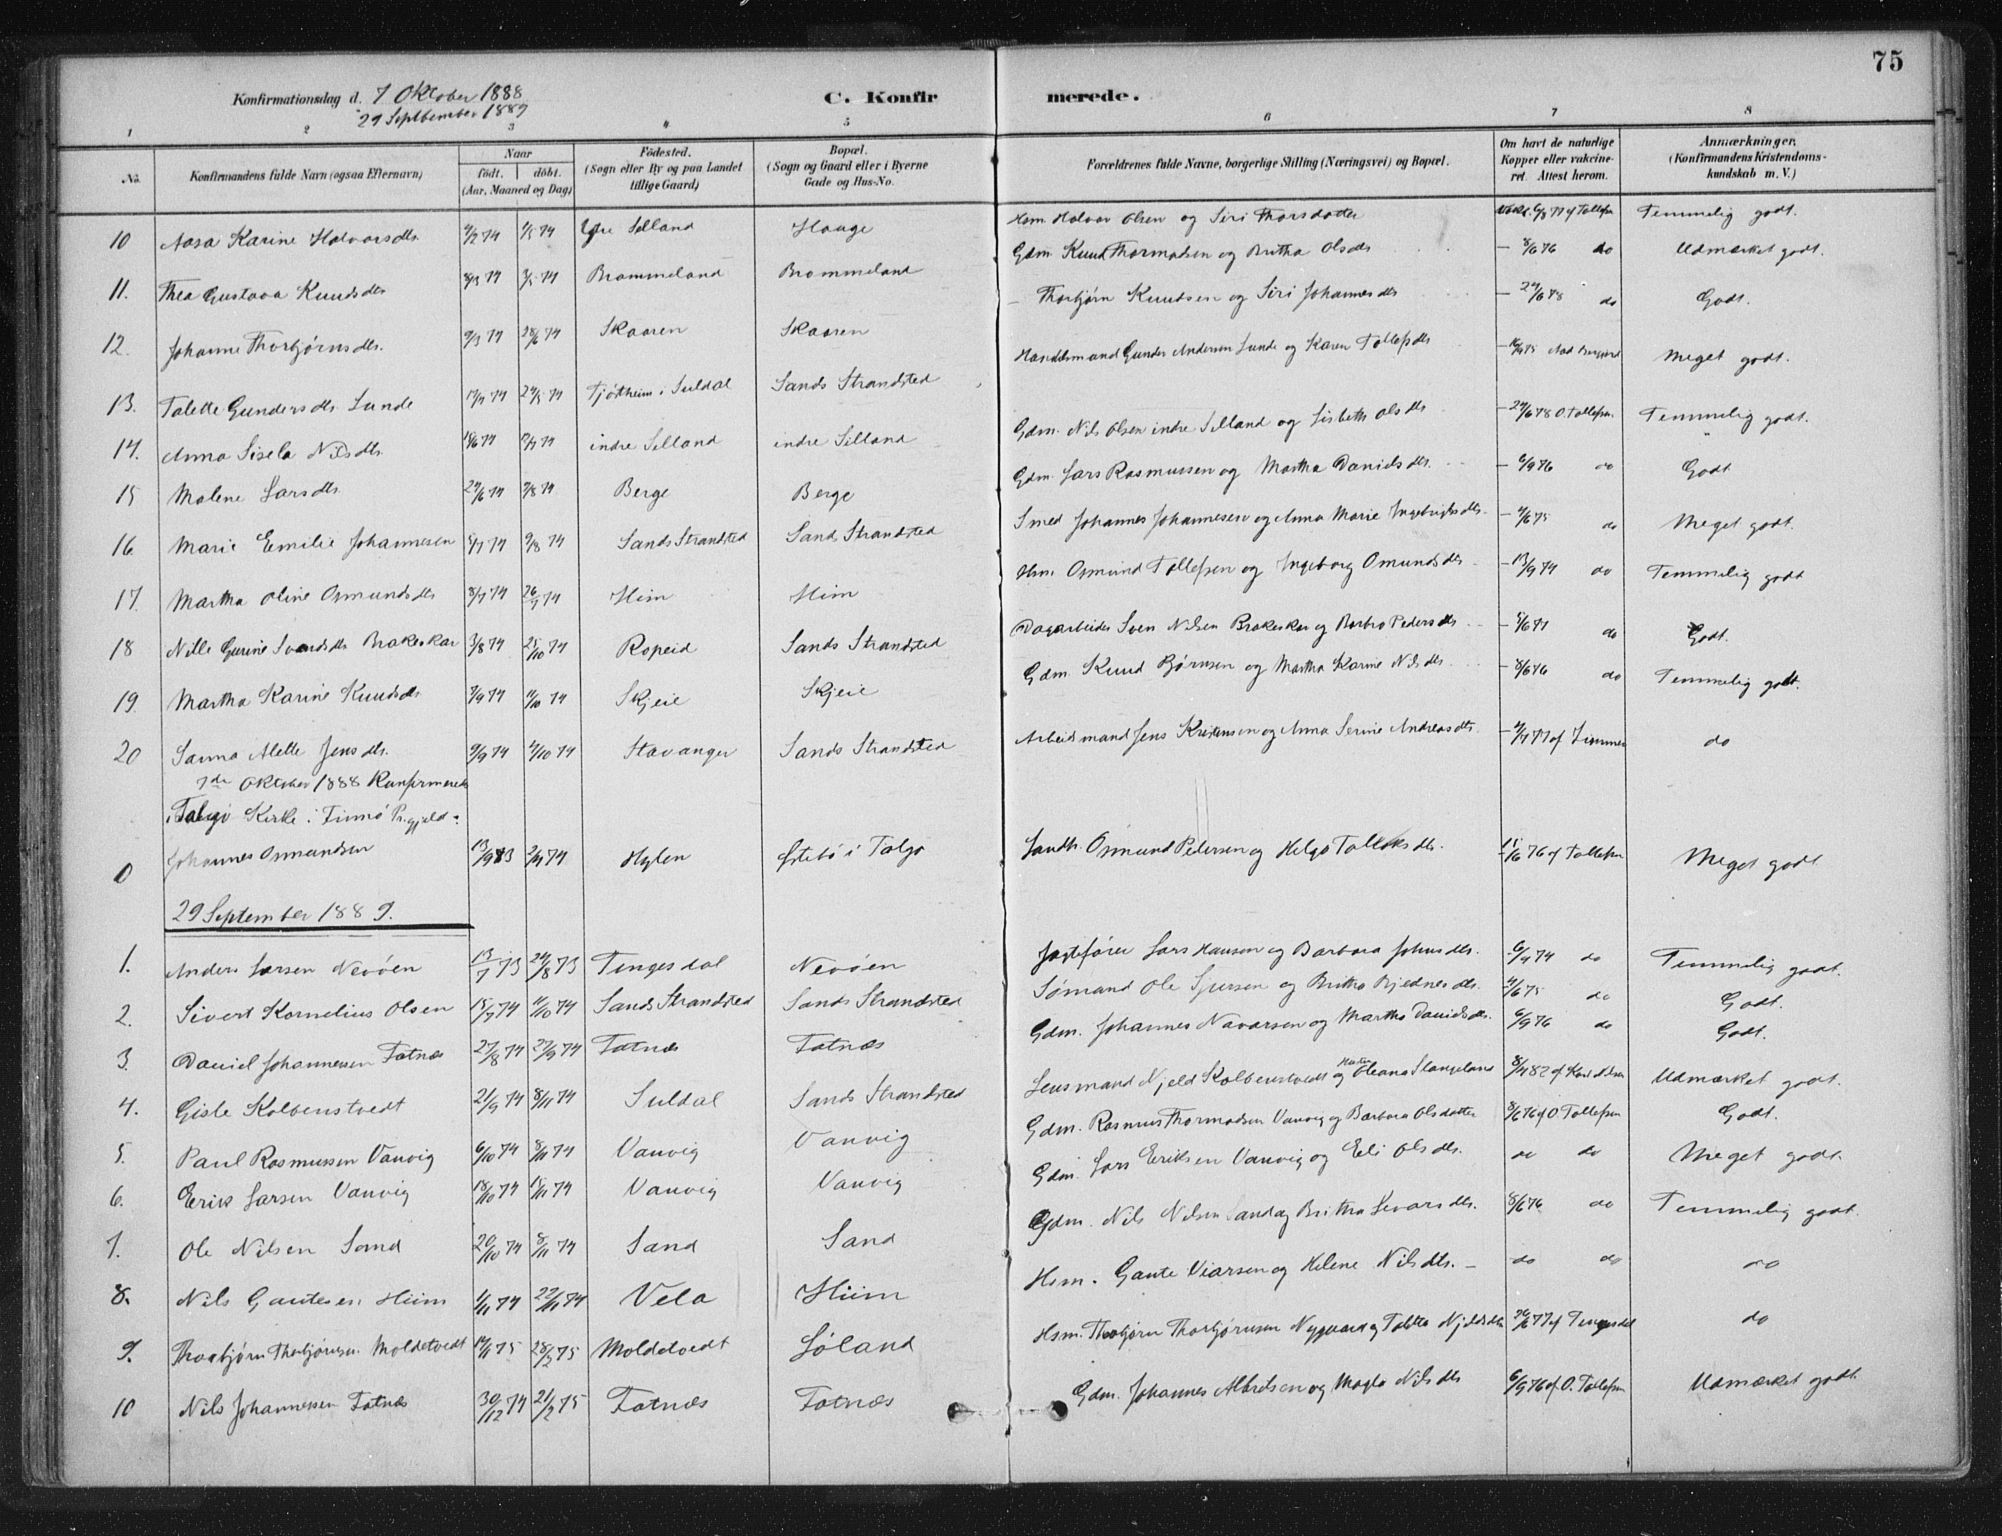 75
Konfirmationsdag d. 7 Oktober 1888
29 Septbember 1889
C. Konfir merede.
1 2 3 4 5 6 7 8
No. Konfirmandens fulde Navn (ogsaa Efternavn) Naar født. døbt. (Aar, Maaned og Dag) Fødested. (Sogn eller By og paa Landet tillige Gaard) Bopæl. (Sogn og Gaard eller i Byerne Gade og Hus-No. Forældrenes fulde Navne, borgerlige Stilling (Næringsvei) og Bopæl. Om havt de naturlige Kopper eller vakcineret. Attest herom. Anmærkninger. (Konfirmandens Kristendomskundskab m. V.)
10 Aasa Karine Halvorsdtr. 4/2 74 1/5 74 Ytre Selland Hauge Hsm. Halvor Olsen og Siri Thorsdatter Temmelig godt.
11. Thea Gustava Knudsdtr 8/3 74 3/5 74 Brommeland Brommeland Gdm. Knud Thormodsen og Britha Olsdtr – 8/6 76 do Udmærket godt.
12. Johanne Thorbjørnsdtr. 9/3 74 28/6 74 Skaaren Skaaren – Thorbjørn Knudsen og Siri Johannesdtr – 24/6 78 do Godt.
13. Talette Gundersdtr Lunde 24/5 74 Tjøtheim i Suldal Sands Strandsted Handelsmand Gunder Andersen Lunde og Karen Tollefsdtr Meget godt.
14. Anna Sisela Nilsdtr. 18/6 74 12/7 74 indre Selland indre Selland Gdm. Nils Olsen indre Selland og Lisbeth Olsdtr – 24/6 78 O. Tollefsen. Temmelig godt.
15 Malene Larsdtr 24/6 74 2/8 74 Berge Berge Gdm. Lars Rasmussen og Martha Danielsdtr. – 6/9 76 do Godt
16 Marie Emilie Johannesen 5/7 74 9/8 74 Sands Strandsted Sands Strandsted Smed Johannes Johannesen og Anna Marie Ingebrigtsdtr – 4/6 75 do Meget godt.
17. Martha Oline Osmundsdtr 8/7 74 26/7 74 Hiim Hiim Hsm. Osmund Tollefsen og Ingeborg Omundsdtr – 13/9 74 do Temmelig godt
18 Nille Gurine Svendsdtr Brakeskar 3/8 74 25/10 74 Ropeid Sands Strandsted Dagarbeider Sven Nilsen Brakeskar og Barbro Pedersdtr – 8/6 77 do Godt.
19. Martha Karine Knudsdtr 7/9 74 11/10 74 Skjeie Skjeie Gdm. Knud Bjørnsen og Martha Karine Nilsdtr. – 8/6 76 do Temmelig godt.
20 Sanna Alette Jensdtr. 9/9 74 4/10 74 Stavanger Sands Strandsted Arbeidsmand Jens Kristensen og Anna Serine Andreasdtr. do
7de Oktober 1888 Konfirmeret
i Talgø Kirke i Finnø Prgjeld.
0 Johannes Osmundsen 13/9 73 2/4 74 Hylen Østebø i Talgø Landh. Osmund Pedersen og Helga Tolleksdtr. 15/6 76 af Tollefsen Meget godt
29 September 1889.
1. Anders Larsen Nevøen 13/7 73 24/8 73 Tengesdal Nevøen Jagtfører Lars Hansen og Barbara Johnsdtr. 6/9 74 do Temmelig godt.
2. Sivert Kornelius Olsen 15/7 74 11/10 74 Sands Strandsted Sands Strandsted Sømand Ole Sjursen og Britha Bjednesdtr. 4/6 75 do Godt.
3. Daniel Johannessen Fatnæs 27/8 74 27/9 74 Fatnæs Fatnæs Gdm. Johannes Navarsen og Martha Danielsdtr. 6/9 76 do Godt.
4. Gisle Kolbenstvedt 21/9 74 8/11 74 Suldal Sands Strandsted Lensmand Njeld Kolbenstvedt og Hustru Oleana Slangeland Udmærket godt.
5. Paul Rasmussen Vanvig 6/10 74 8/11 74 Vanvig Vanvig Gdm. Rasmus Thormodsen Vanvig og Barbara Olsdatter 8/6 76 af O Tollefsen Godt.
6. Erik Larsen Vanvig 18/10 74 15/11 74 Vanvig Vanvig Gdm. Lars Eriksen Vanvig og Eli Olsdtr. do do Meget godt.
7. Ole Nilsen Sand 20/10 74 8/11 74 Sand Sand Gdm. Nils Nilsen Sand og Britha Sivarsdtr. 8/6 76 do Temmelig godt.
8. Nils Gautesen Hiim 1/11 74 22/11 74 Vela Hiim Hsm. Gaute Viarsen og Helene Nilsdtr. – do do do
9. Thorbjørn Thorbjørnsen Moldetvedt 14/1 75 28/2 75 Moldetvedt Løland Hsm. Thorbjørn Thorbjørnsen Nygaard og Talette Njeldsdtr 26/6 77 af Tengesdal do
10 Nils Johannessen Fatnæs 30/12 74 21/2 75 Fatnæs Fatnæs Gdm. Johannes Albretsen og Magla Nilsdtr 6/9 76 af O. Tollefsen Udmærket godt.